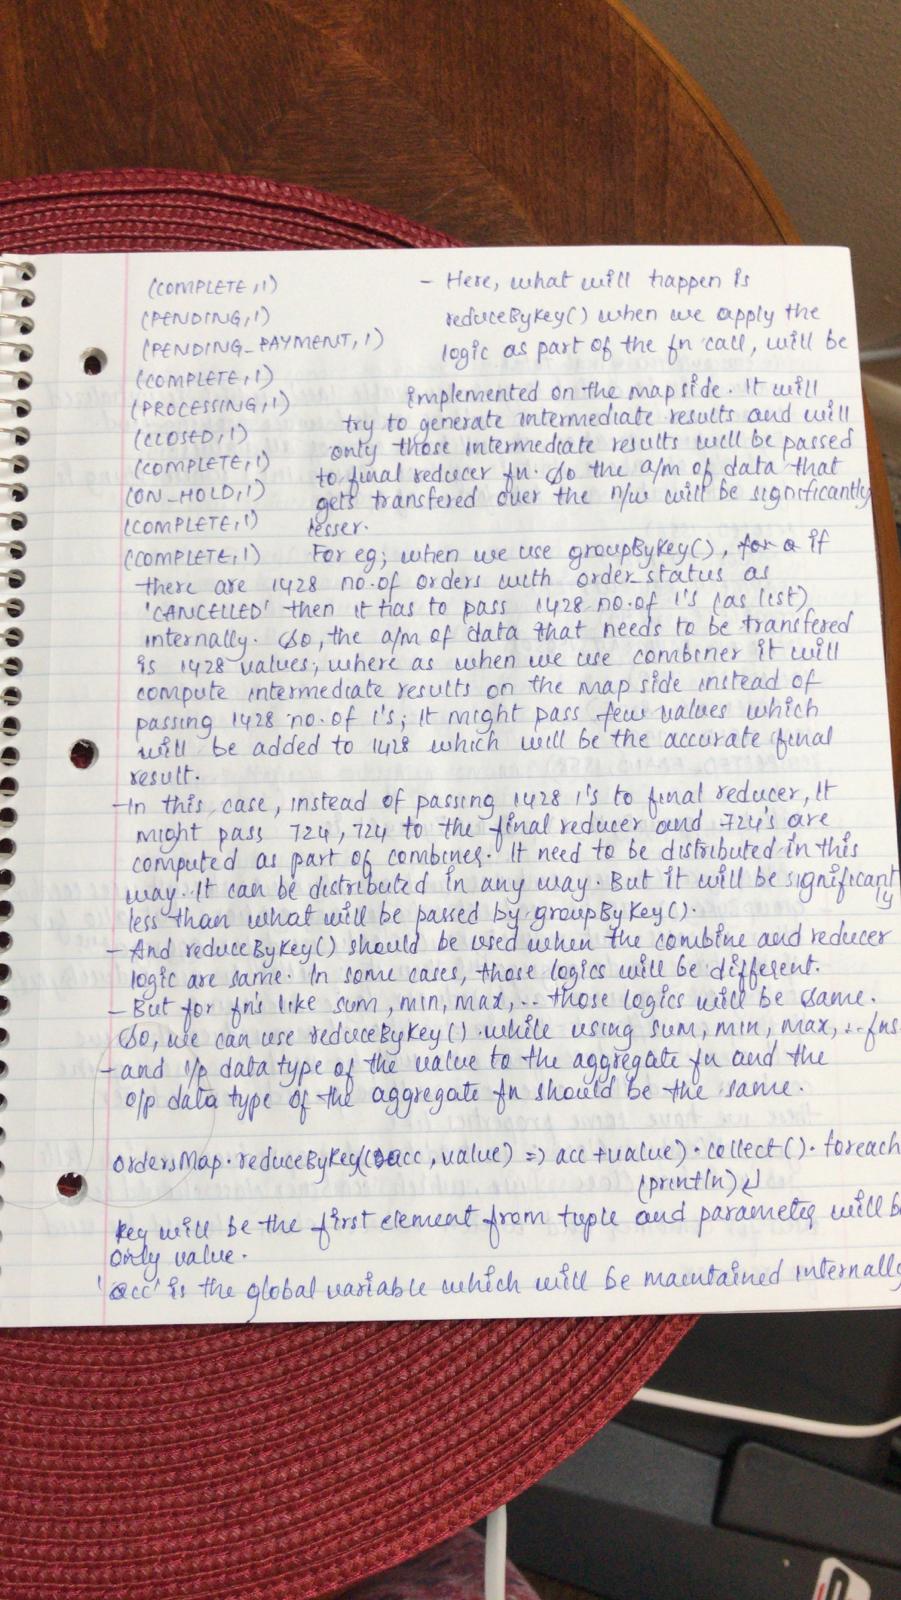 (COMPLETE,1) - Here, what will happen is
(PENDING,1) reduceByKey() when we apply the
(PENDING_PAYMENT,1) logic as part of the fn call, will be
(COMPLETE,1) implemented on the map side. It will
(PROCESSING,1) try to generate intermediate results and will
(CLOSED,1) only those intermediate results will be passed
(COMPLETE,1) to final reducer fn. So the a/m of data that
(ON_HOLD,1) gets transfered over the n/w will be significantly
(COMPLETE,1) lesser.
(COMPLETE,1) For eg; when we use groupByKey(), for a if
there are 1428 no.of orders with order status as
'CANCELLED' then it has to pass 1428 no.of 1's (as list)
internally. So, the a/m of data that needs to be transfered
is 1428 values; where as when we use combiner it will
compute intermediate results on the map side instead of
passing 1428 no.of 1's; it might pass few values which
will be added to 1428 which will be the accurate final
result.
- In this case, instead of passing 1428 1's to final reducer, it
might pass 724, 724 to the final reducer and 724's are
computed as part of combiner. It need to be distributed in this
way. It can be distributed in any way. But it will be significantly
less than what will be passed by groupByKey().
- And reduceByKey() should be used when the combine and reducer
logic are same. In some cases, those logics will be different.
- But for fn's like sum, min, max,.. those logics will be same.
So, we can use reduceByKey() while using sum, min, max,.. fns
- and i/p data type of the value to the aggregate fn and the
o/p data type of the aggregate fn should be the same.
ordersMap.reduceByKey((acc, value) => acc + value).collect().foreach
(println)↲
Key will be the first element from tuple and parameter will be
only value.
'acc' is the global variable which will be maintained internally